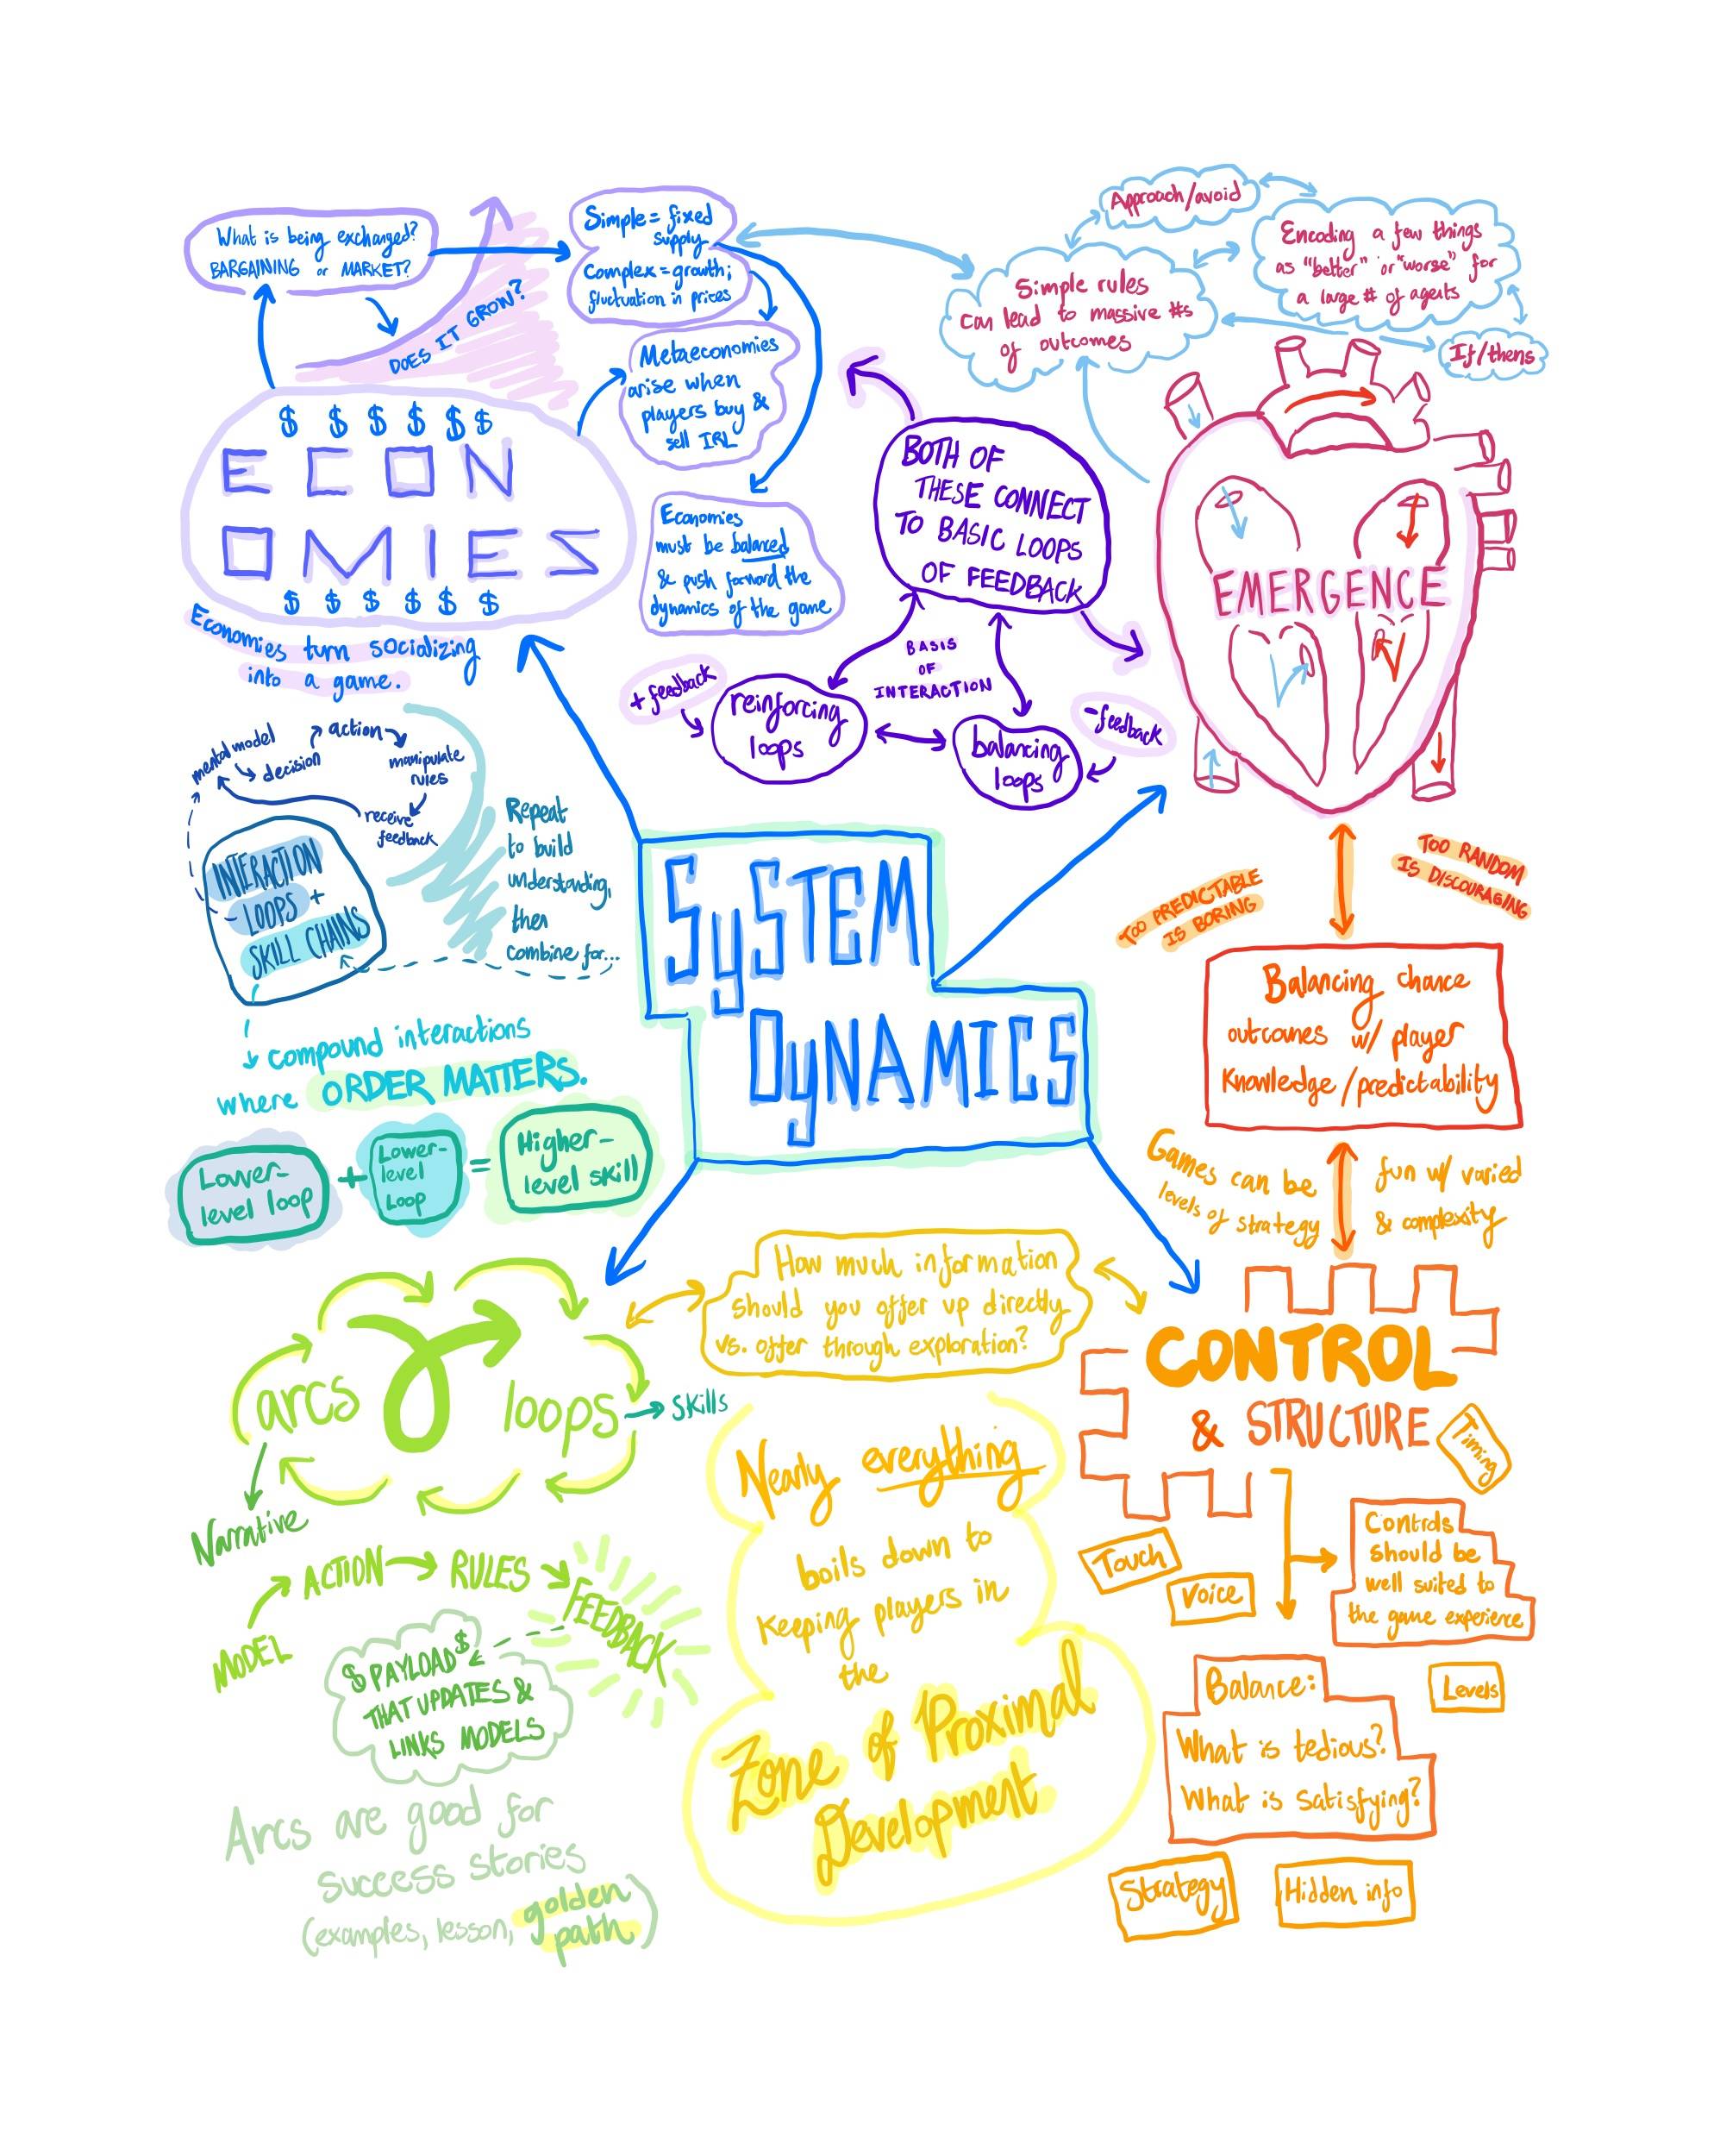 What is being exchanged?
BARGAINING or MARKET?
DOES IT GROW?
Simple = fixed
supply
Complex = growth;
fluctuation in prices
Metaeconomies
arise when
players buy &
sell IRL
Economies
must be balanced
& push forward the
dynamics of the game
$ $ $ $ $ $
ECON
OMIES
$ $ $ $ $ $
Economies turn socializing
into a game.
BOTH OF
THESE CONNECT
TO BASIC LOOPS
OF FEEDBACK
BASIS
OF
INTERACTION
+ feedback
reinforcing
loops
- feedback
balancing
loops
Approach/avoid
Encoding a few things
as "better" or "worse" for
a large # of agents
If/thens
Simple rules
can lead to massive #s
of outcomes
EMERGENCE
TOO PREDICTABLE
IS BORING
TOO RANDOM
IS DISCOURAGING
Balancing chance
outcomes w/ player
knowledge/predictability
Games can be fun w/ varied
levels of strategy & complexity
mental model
decision
action
manipulate
rules
receive
feedback
INTERACTION
LOOPS +
SKILL CHAINS
Repeat
to build
understanding,
then
combine for...
compound interactions
where ORDER MATTERS.
Lower-
level loop
+
Lower-
level
Loop
=
Higher-
level skill
SYSTEM
DYNAMICS
arcs
loops
skills
Narrative
MODEL
ACTION
RULES
FEEDBACK
$ PAYLOAD $
THAT UPDATES &
LINKS MODELS
Arcs are good for
success stories
(examples, lesson, golden
path)
How much information
should you offer up directly
vs. offer through exploration?
Nearly everything
boils down to
keeping players in
the
Zone of Proximal
Development
CONTROL
& STRUCTURE
Timing
Touch
Voice
Controls
should be
well suited to
the game experience
Levels
Balance:
What is tedious?
What is satisfying?
Strategy
Hidden info